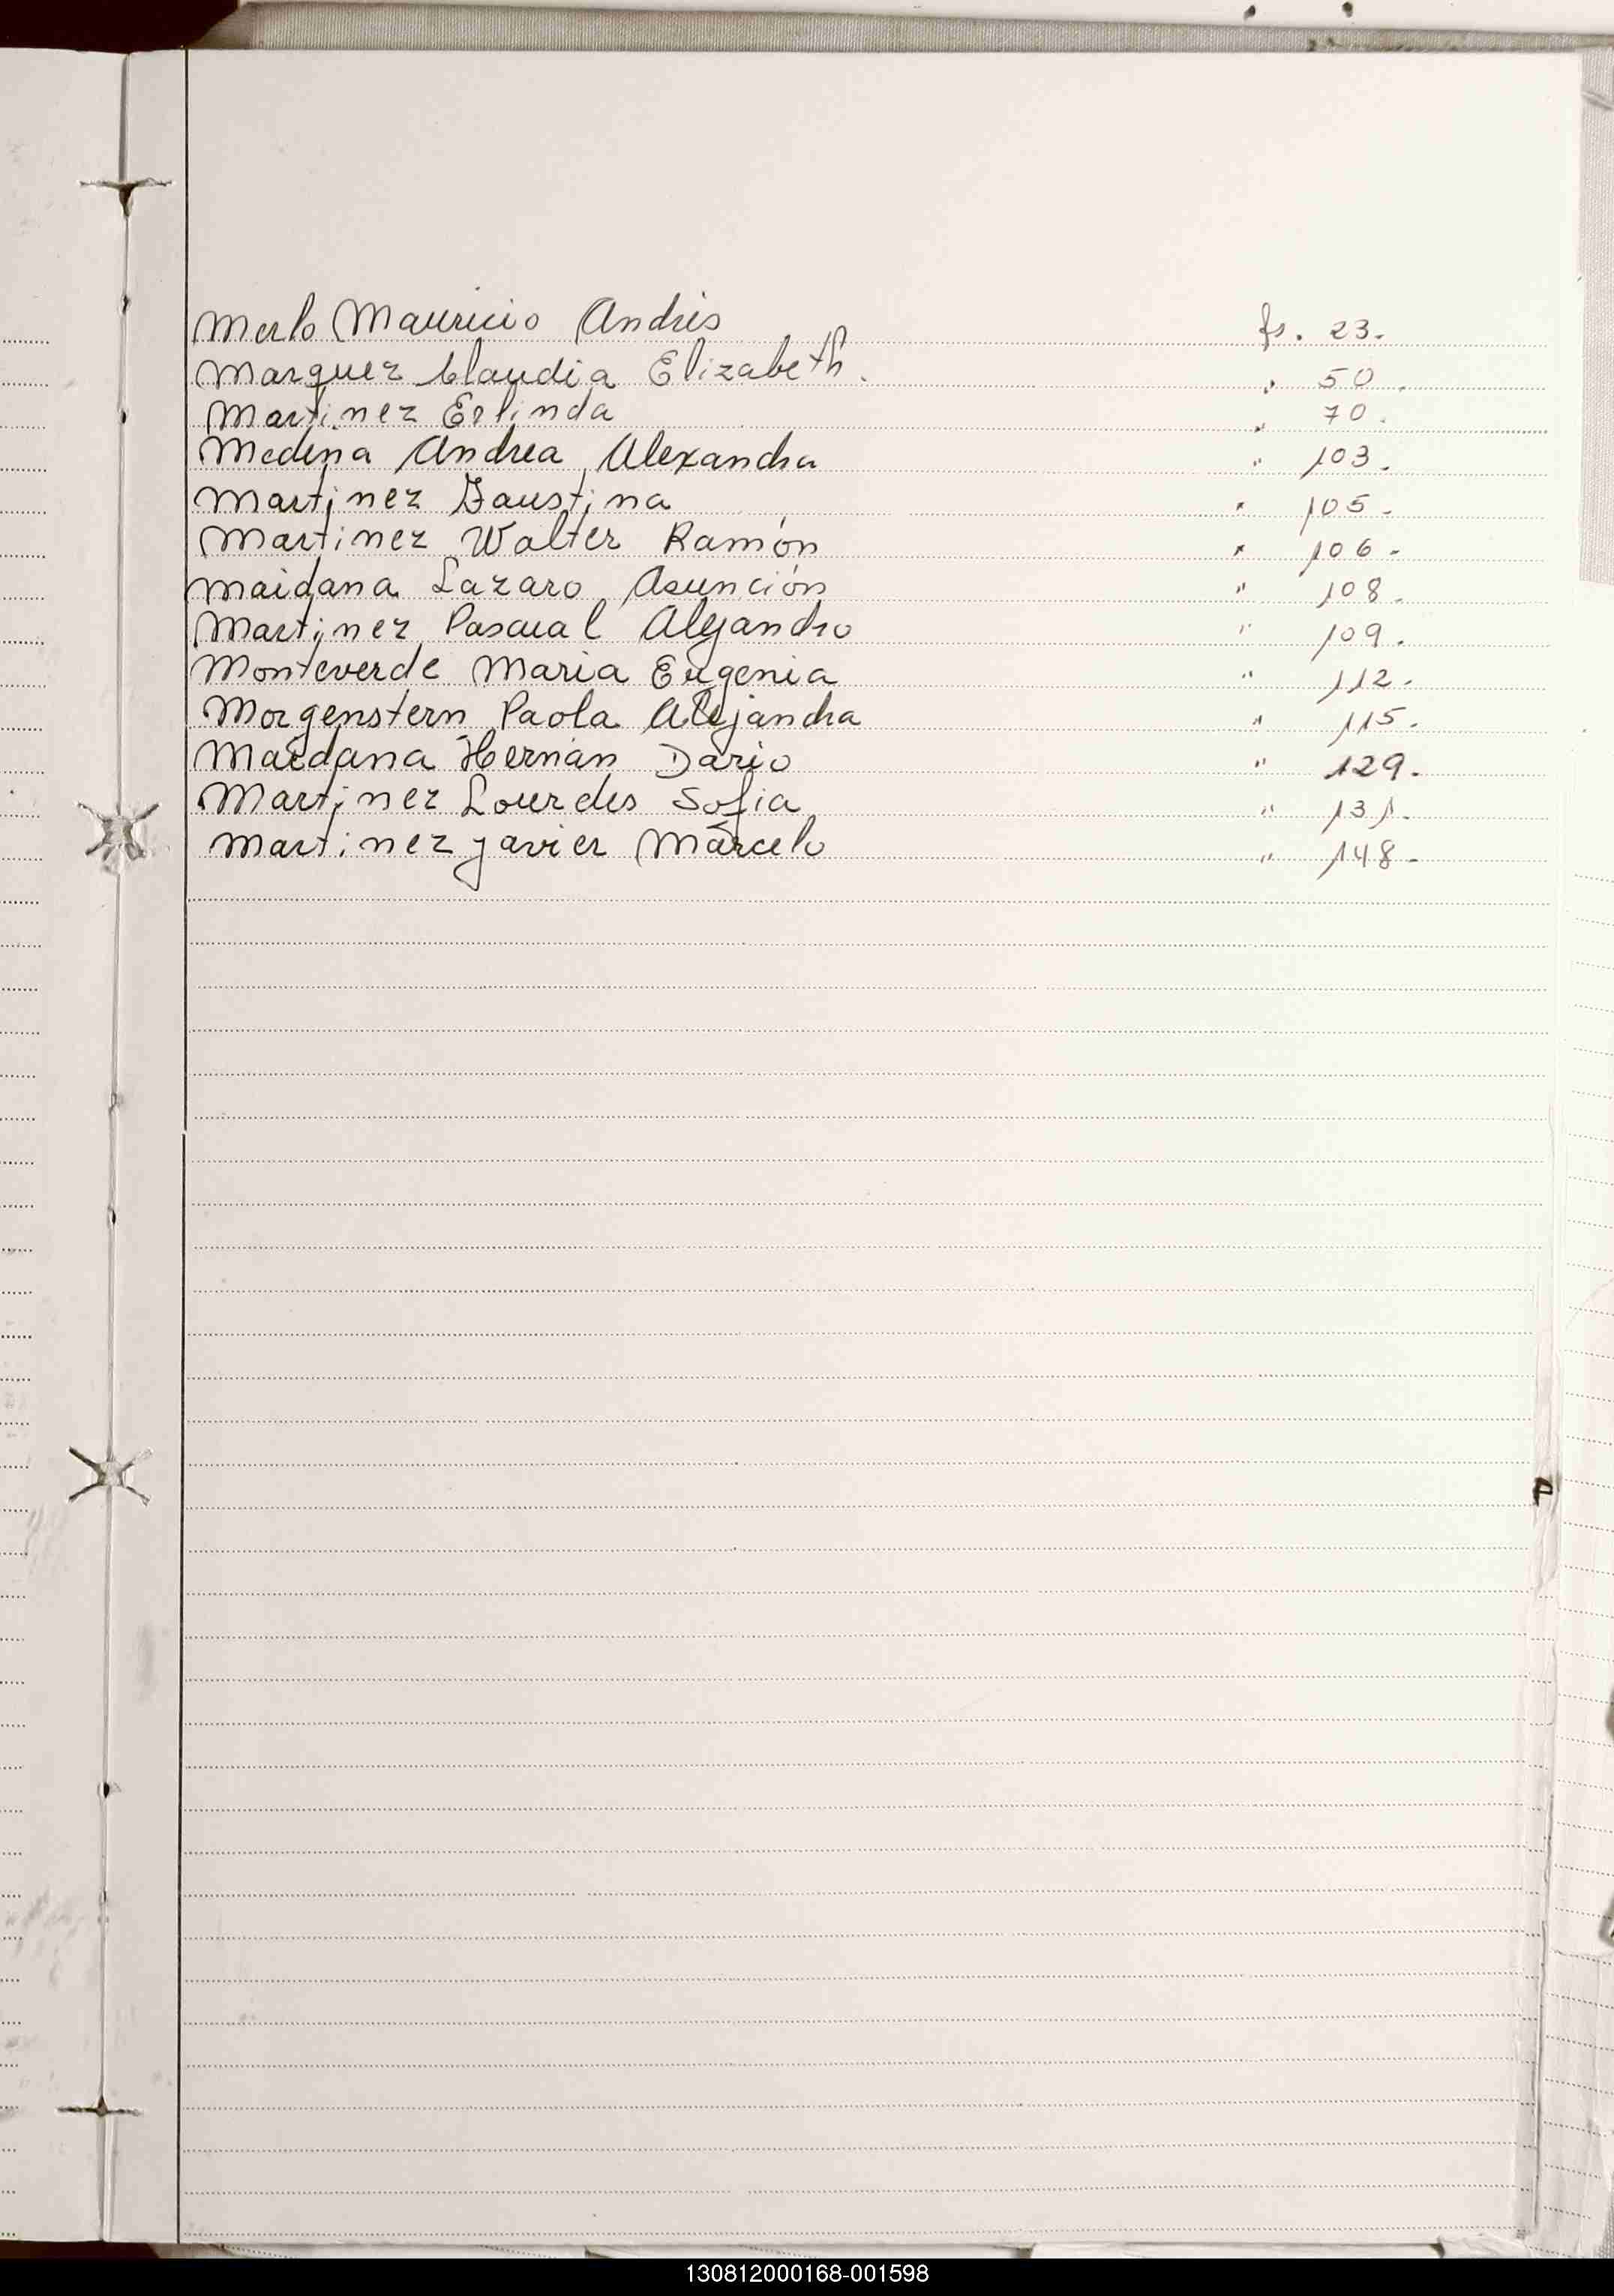 Merlo Mauricio Andrés fs. 23.
Marquez Claudia Elizabeth. " 50.
Martinez Erlinda " 70.
Medina Andrea Alexandra " 103.
Martinez Faustina " 105.
Martinez Walter Ramón " 106.
Maidana Lazaro Asunción " 108.
Martinez Pascual Alejandro " 109.
Monteverde Maria Eugenia " 112.
Morgenstern Paola Alejandra " 115.
Maidana Hernán Dario " 129.
Martinez Lourdes Sofia " 131.
Martinez Javier Marcelo " 148.
P
130812000168-001598